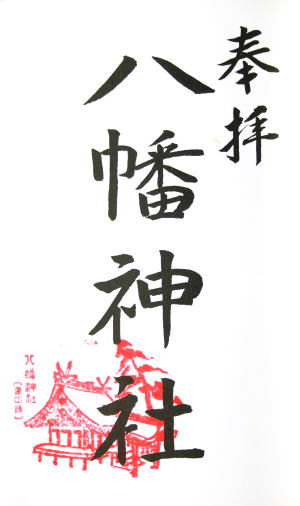 奉拝
八幡神社
八幡神社